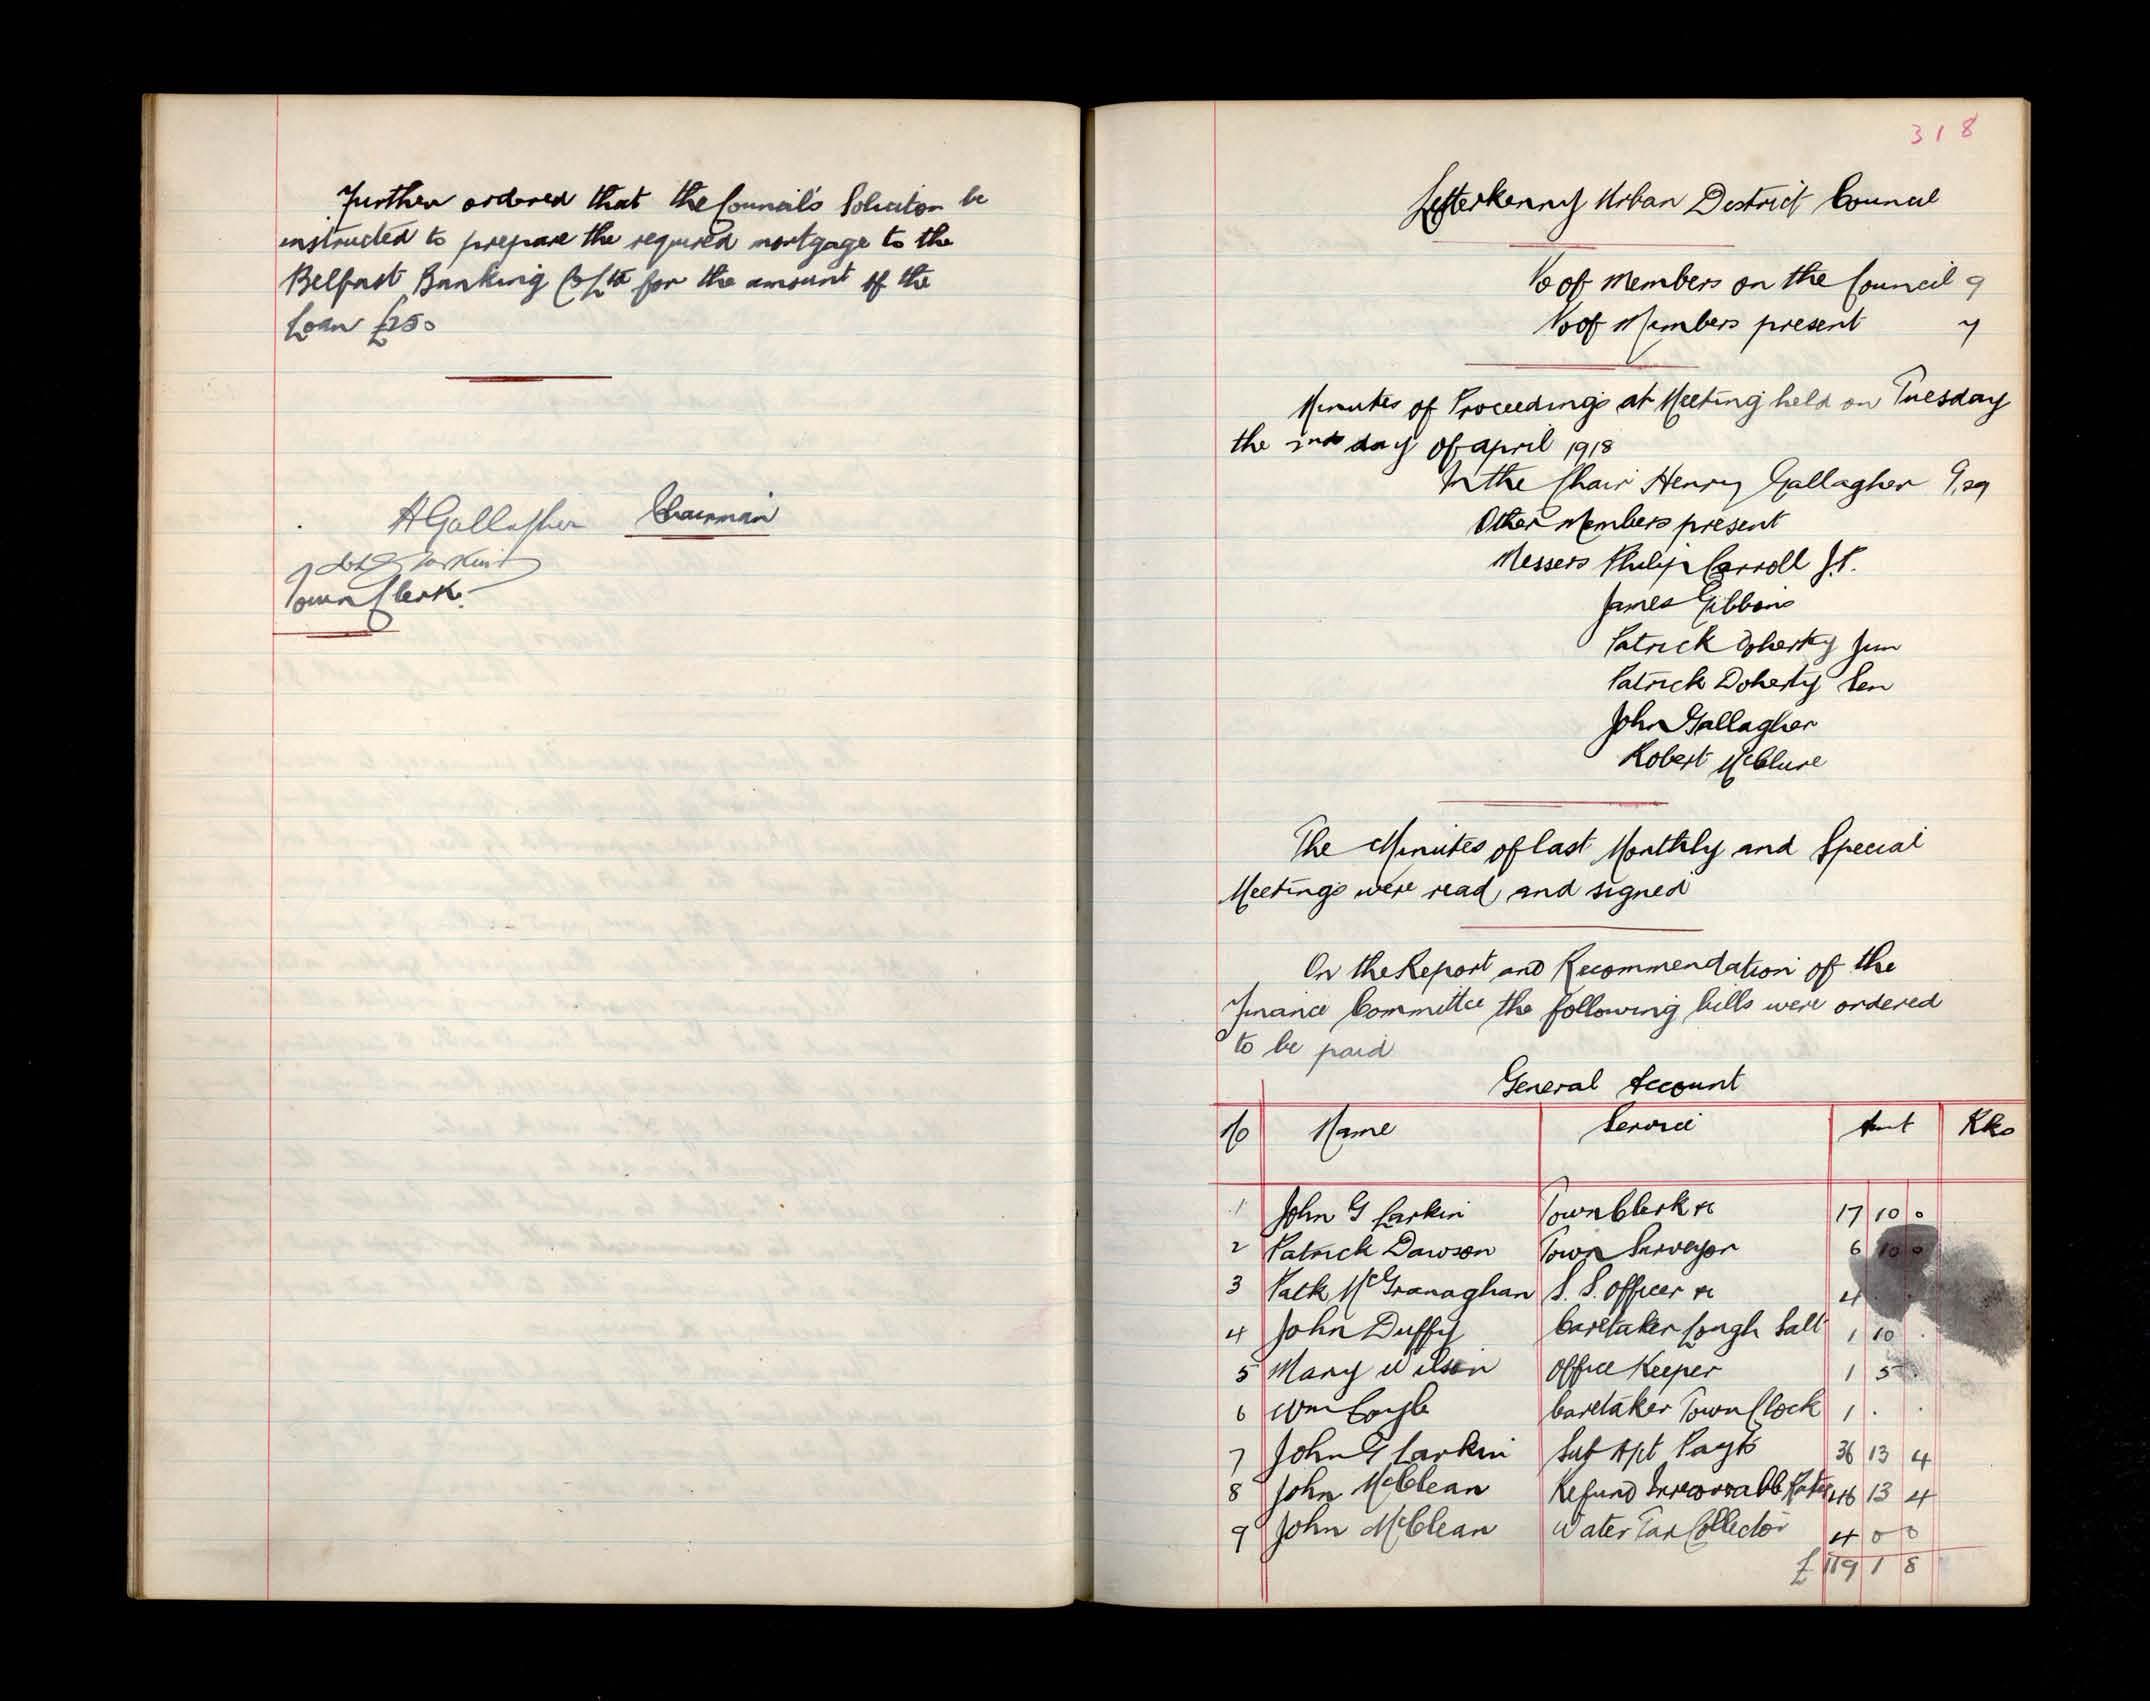 Further ordered that the Council's Solicitor be
instructed to prepare the required mortgage to the
Belfast Banking Co Ltd for the amount of the
Loan £250
HGallagher Chairman
John G Larkin
Town Clerk.
318
Letterkenny Urban District Council
No of Members on the Council 9
No of Members present 7
Minutes of Proceedings at Meeting held on Tuesday
the 2nd day of April 1918
In the Chair Henry Gallagher Esq
Other Members present
Messers Philip Carroll J.P.
James Gibbons
Patrick Doherty Jun
Patrick Doherty Sen
John Gallagher
Robert McClure
The Minutes of last Monthly and Special
Meetings were read, and signed
On the Report and Recommendation of the
Finance Committee the following bills were ordered
to be paid
General Account
No Name Service Amt Rks
1 John G Larkin Town Clerk &c 17 10 0
2 Patrick Dawson Town Surveyor 6 10 0
3 Patk McGranaghan S. S. Officer &c 4 . .
4 John Duffy Caretaker Lough Salt 1 10 .
5 Mary Wilson Office Keeper 1 5 .
6 Wm Coyle Caretaker Town Clock 1 . .
7 John G Larkin Sub Apt Payts 36 13 4
8 John McClean Refund Irrecovrable Rates 46 13 4
9 John McClean Water Tax Collector 4 0 0
£ 119 1 8